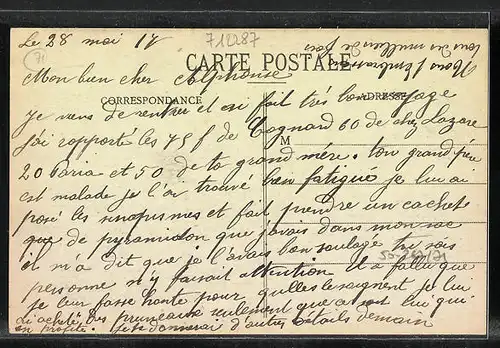 Le 28 mai 17
712287
71
Nous t'embrassons
tous des milliers de fois
CARTE POSTALE
Mon bien cher Alphonse
CORRESPONDANCE
ADRESSE
je viens de rentrer et ai fait très bon voyage
j'ai rapporté les 75 f de Cognard 60 de chez Lazare
M
20 Paria et 50 de ta grand mère. ton grand père
est malade je l'ai trouvé bien fatigué je lui ai
posé les sinapismes et fait prendre un cachet
que de pyramidon que j'avais dans mon sac
il m'a dit que je l'avais bien soulagé tu sais
personne n'y faisait attention il a fallu que
je leur fasse honte pour qu'elles le soignent je lui
ai acheté des pruneaux seulement que c'est lui qui
en profite. je te donnerai d'autres détails demain